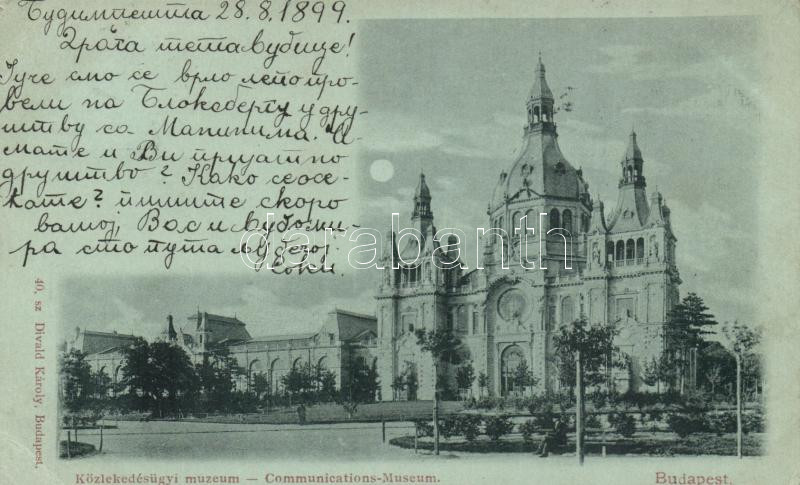 Будимпешта 28.8.1899.
Драга тета Љубице!
Јуче смо се врло лепо про-
вели на Блоксбергу у дру-
штву са
мате и Ви пријатно
друштво? Како се осе-
ћате? пишите скоро
вашој, Вас и Љубоми-
ра сто пута љубећој
darabanth
40, sz Divald Károly, Budapest.
Közlekedésügyi muzeum — Communications-Museum.
Budapest.